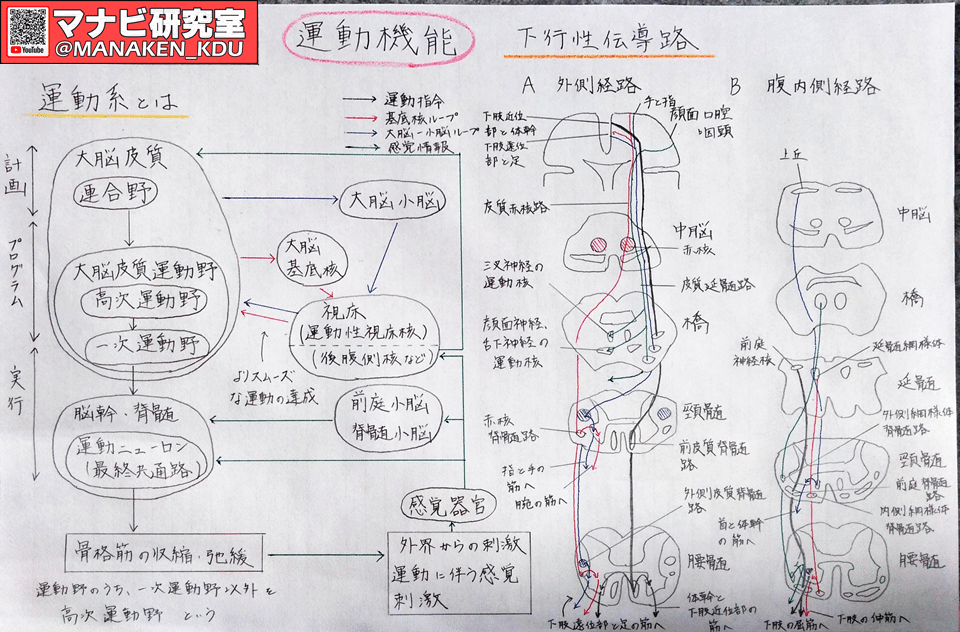 マナビ研究室
YouTube
@MANAKEN_KDU
運動機能
下行性伝導路
運動系とは
運動指令
基底核ループ
大脳ー小脳ループ
感覚情報
計画
プログラム
実行
大脳皮質
連合野
大脳小脳
大脳
基底核
大脳皮質運動野
高次運動野
一次運動野
視床
(運動性視床核)
(後腹側核など)
よりスムーズ
な運動の達成
前庭小脳
脊髄小脳
脳幹・脊髄
運動ニューロン
(最終共通路)
感覚器官
骨格筋の収縮・弛緩
外界からの刺激
運動に伴う感覚
刺激
運動野のうち、一次運動野以外を
高次運動野 という
A 外側経路
手と指
顔面口腔
咽頭
下肢近位
部と体幹
下肢遠位
部と足
皮質赤核路
中脳
赤核
三叉神経の
運動核
皮質延髄路
橋
顔面神経、
舌下神経の
運動核
赤核
脊髄路
頸髄
前皮質脊髄
路
指と手の
筋へ
腕の筋へ
外側皮質脊髄
路
首と体幹
の筋へ
腰髄
体幹と
下肢近位部の
筋へ
下肢遠位部と足の筋へ
B 腹内側経路
上丘
中脳
橋
前庭
神経核
延髄網様体
延髄
外側網様体
脊髄路
頸髄
前庭脊髄
路
内側網様体
脊髄路
腰髄
下肢の屈筋へ
下肢の伸筋へ